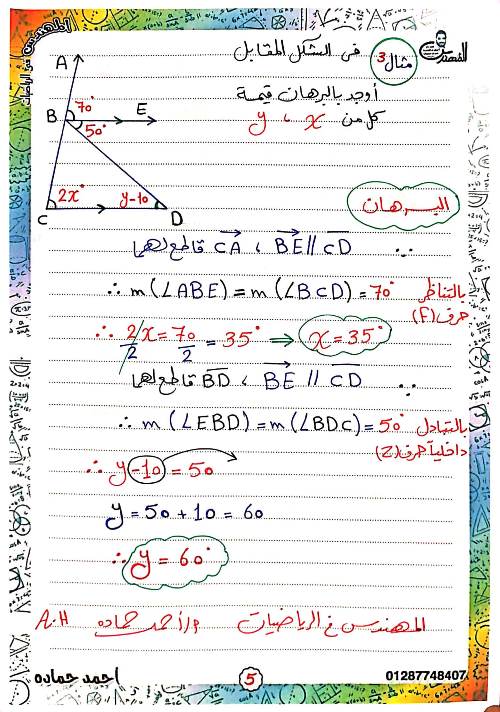 المهندس
المهندس فى الرياضيات
مثال 3
فى الشكل المقابل
أوجد بالبرهان قيمة
كل من x ، y
A
70°
B
E
50°
2x°
y-10
C
D
البرهان
∵ BE // CD ، CA قاطع لهما
∴ m(∠ABE) = m(∠BCD) = 70° بالتناظر
حرف (F)
∴ 2/2 x = 70/2 = 35° ⇒ x = 35°
∵ BE // CD ، BD قاطع لهما
∴ m(∠EBD) = m(∠BDC) = 50° بالتبادل
داخلياً حرف (Z)
∴ y-10 = 50
y = 50 + 10 = 60
∴ y = 60°
المهندس في الرياضيات م/أحمد حماده A.H
احمد حماده
5
01287748407